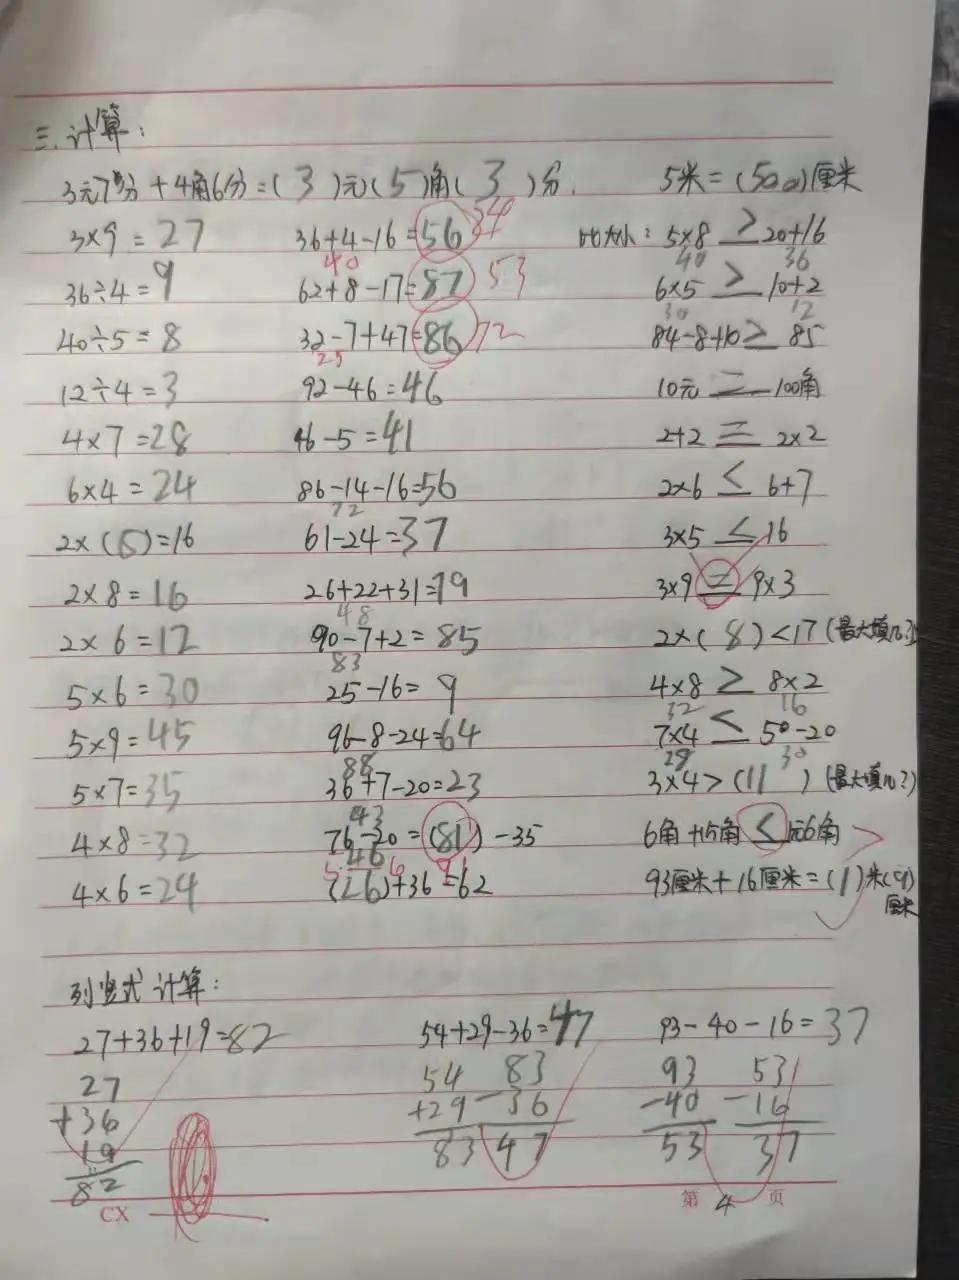 三.计算:
3元7分+4角6分=(3)元(5)角(3)分. 5米=(500)厘米
3×9=27 36+4-16=56 34 比大小: 5×8 > 20+16
40 40 36
36÷4=9 62+8-17=87 53 6×5 > 10+2
30 12
40÷5=8 32-7+47=86 72 84-8+10 > 85
25
12÷4=3 92-46=46 10元 = 100角
4×7=28 46-5=41 2+2 = 2×2
6×4=24 86-14-16=56 2×6 < 6+7
72
2×(6)=16 61-24=37 3×5 < 16
2×8=16 26+22+31=79 3×9 = 9×3
48
2×6=12 90-7+2=85 2×(8)<17(最大填几?)
83
5×6=30 25-16=9 4×8 > 8×2
32 16
5×9=45 96-8-24=64 7×4 < 50-20
88 28 30
5×7=35 36+7-20=23 3×4>(11)(最大填几?)
43
4×8=32 76-20=(81)-35 6角+15角 < 元6角
46
4×6=24 (26)+36=62 93厘米+16厘米=(1)米(9)
厘米
列竖式计算:
27+36+19=82 54+29-36=47 93-40-16=37
27 54 83 93 53
+36 +29 -36 -40 -16
19 83 47 53 37
82
CX 第 4 页